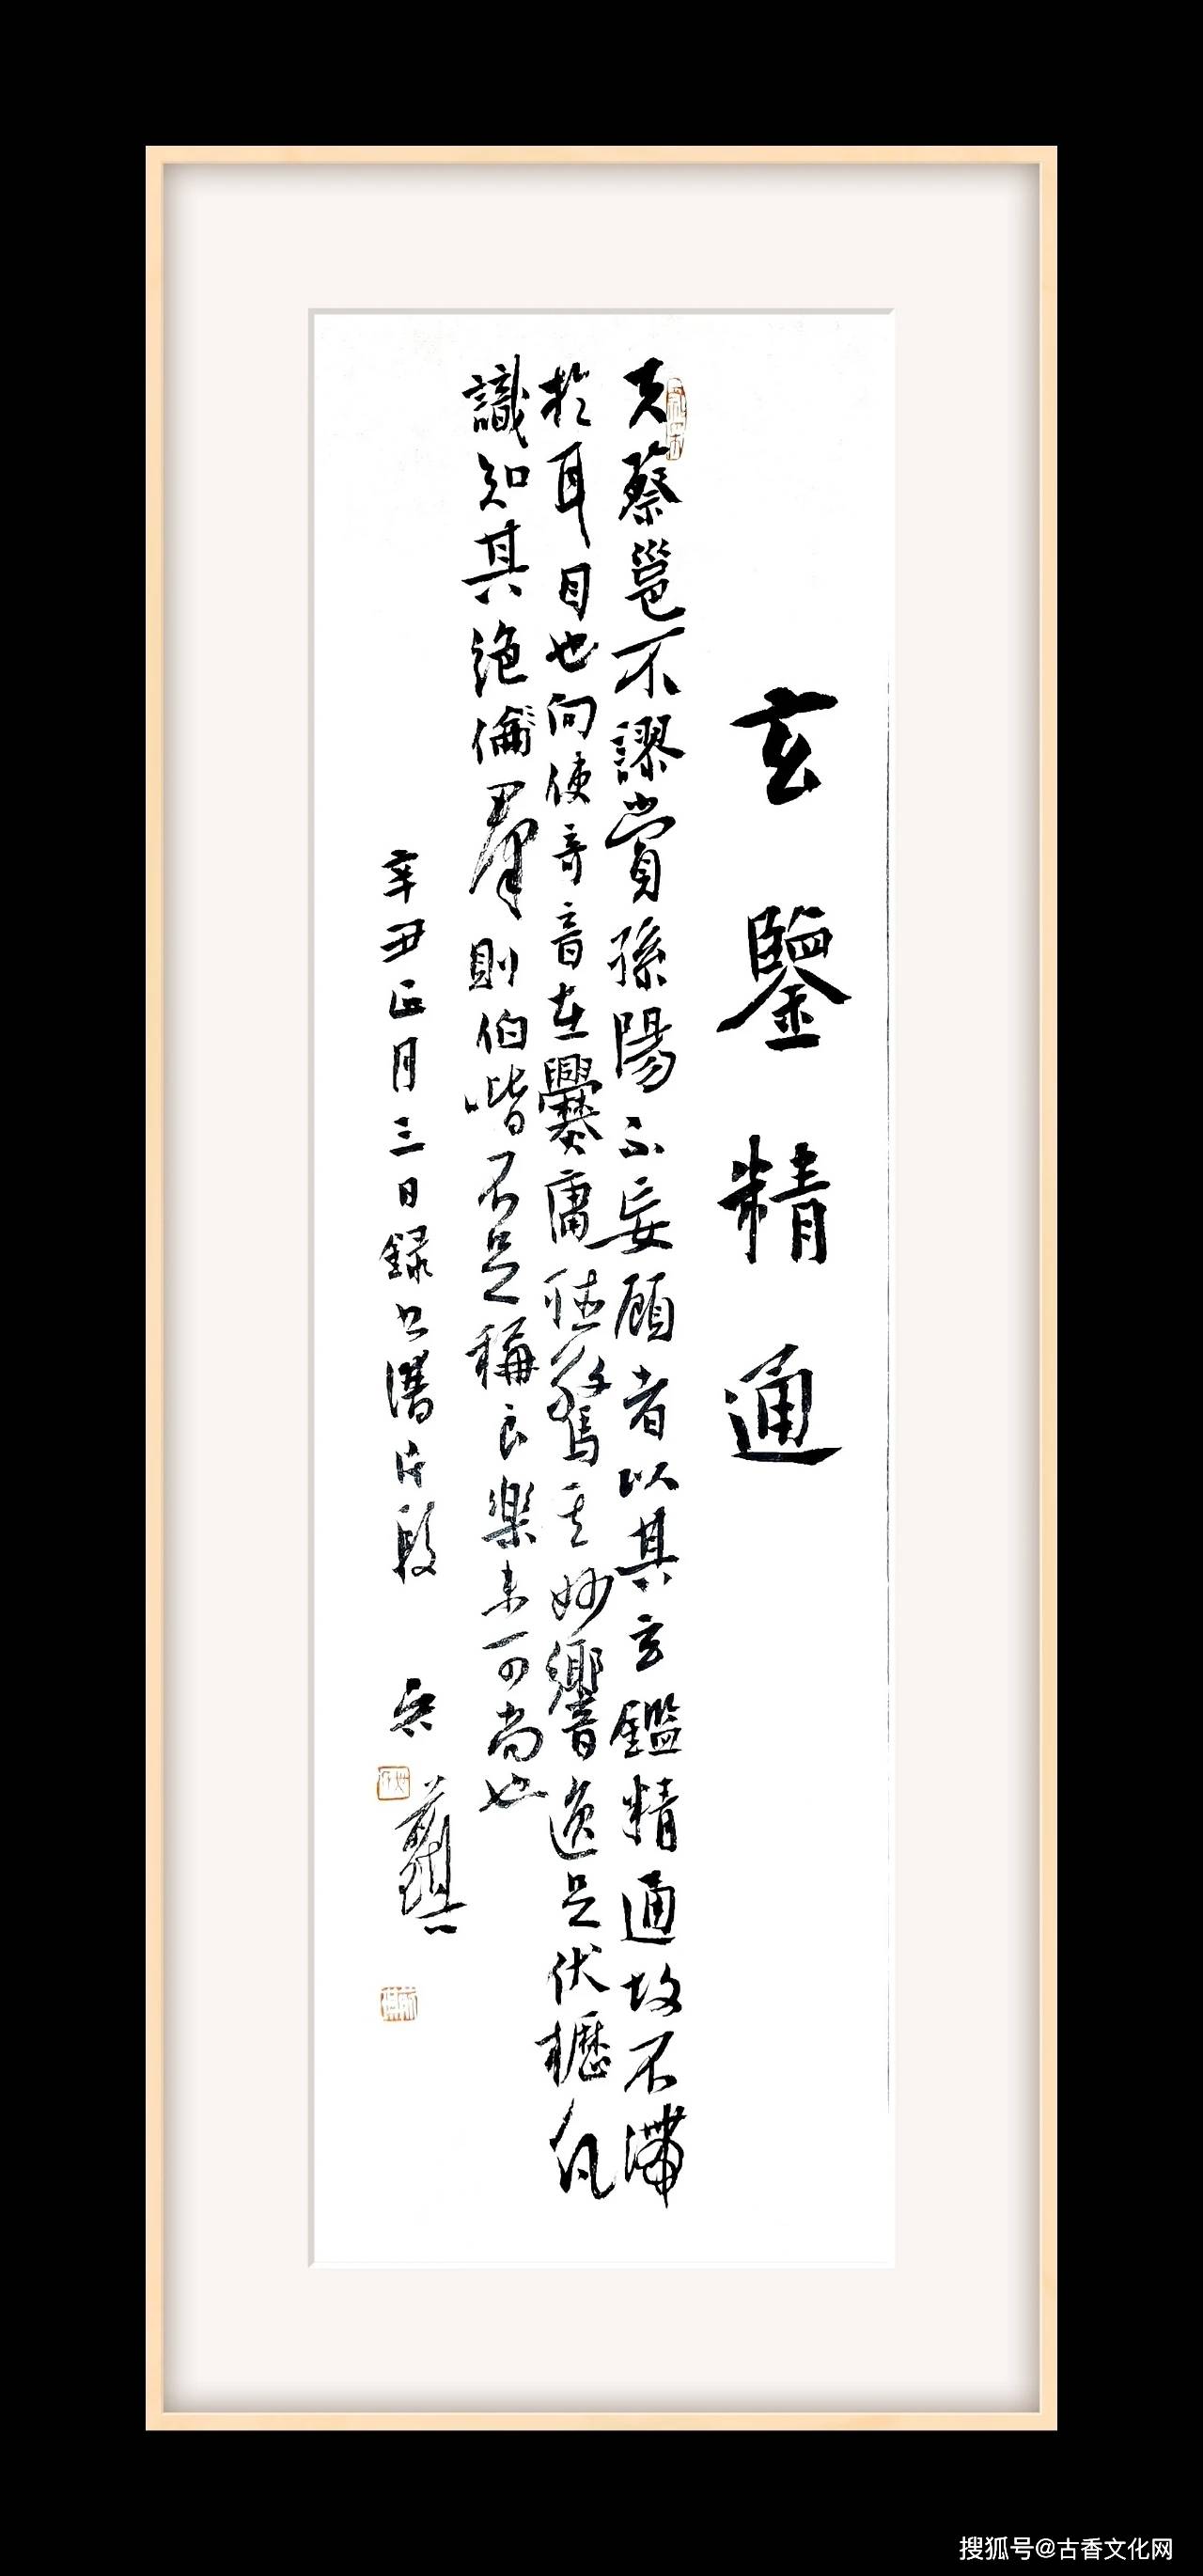 玄鑒精通
夫蔡邕不謬賞孫陽不妄顧者以其玄鑑精通故不滯
於耳目也向使奇音在爨庸聽驚其妙響逸足伏櫪凡
識知其絶倫群則伯喈不足稱良樂未可尚也
辛丑正月三日録書譜片段
搜狐号@古香文化网